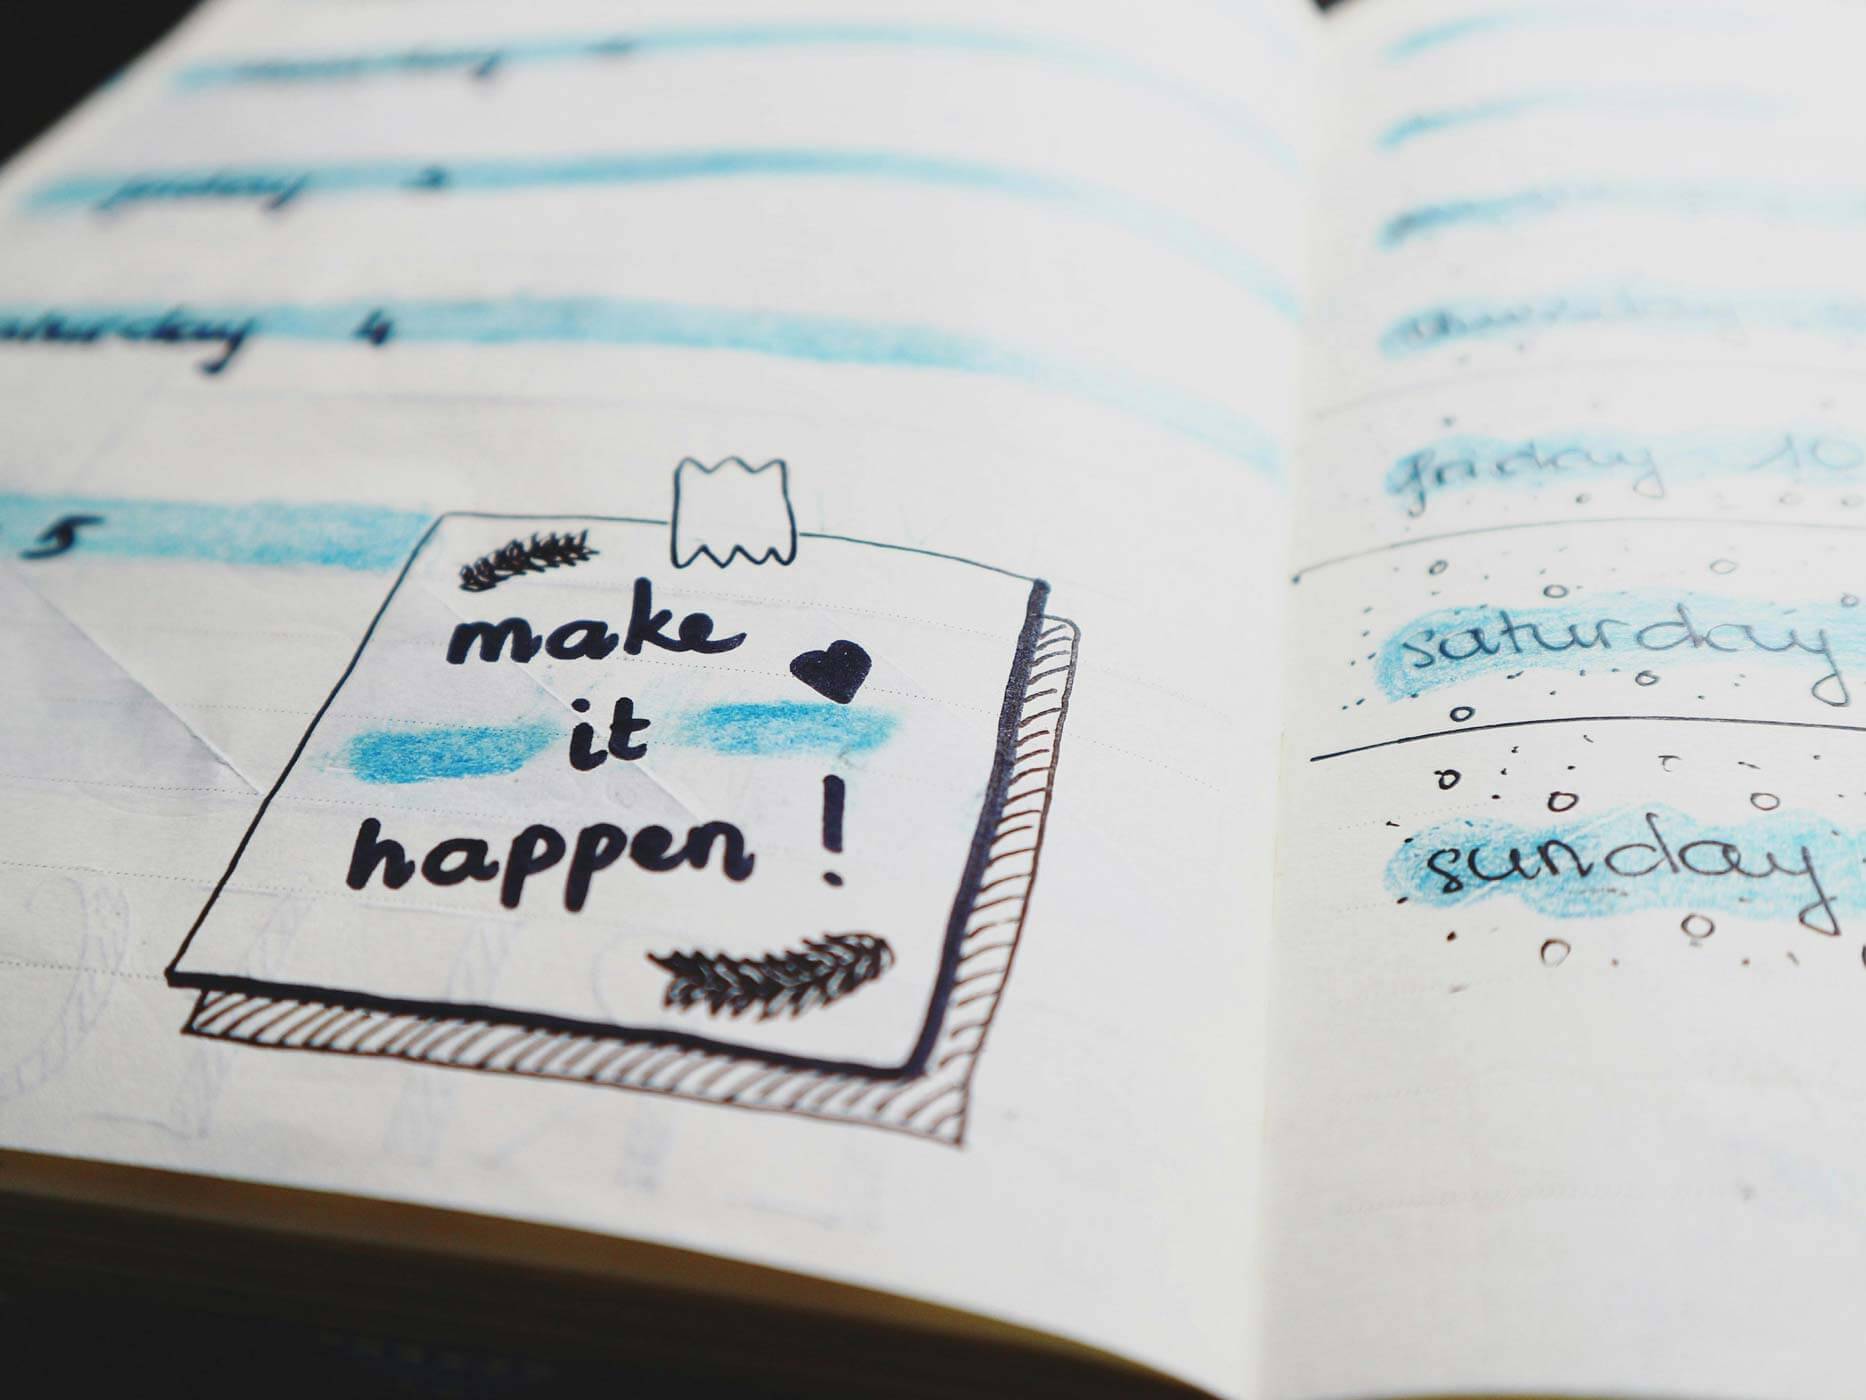 friday 3
saturday 4
5
make
it
happen !
thursday
friday 10
saturday
sunday